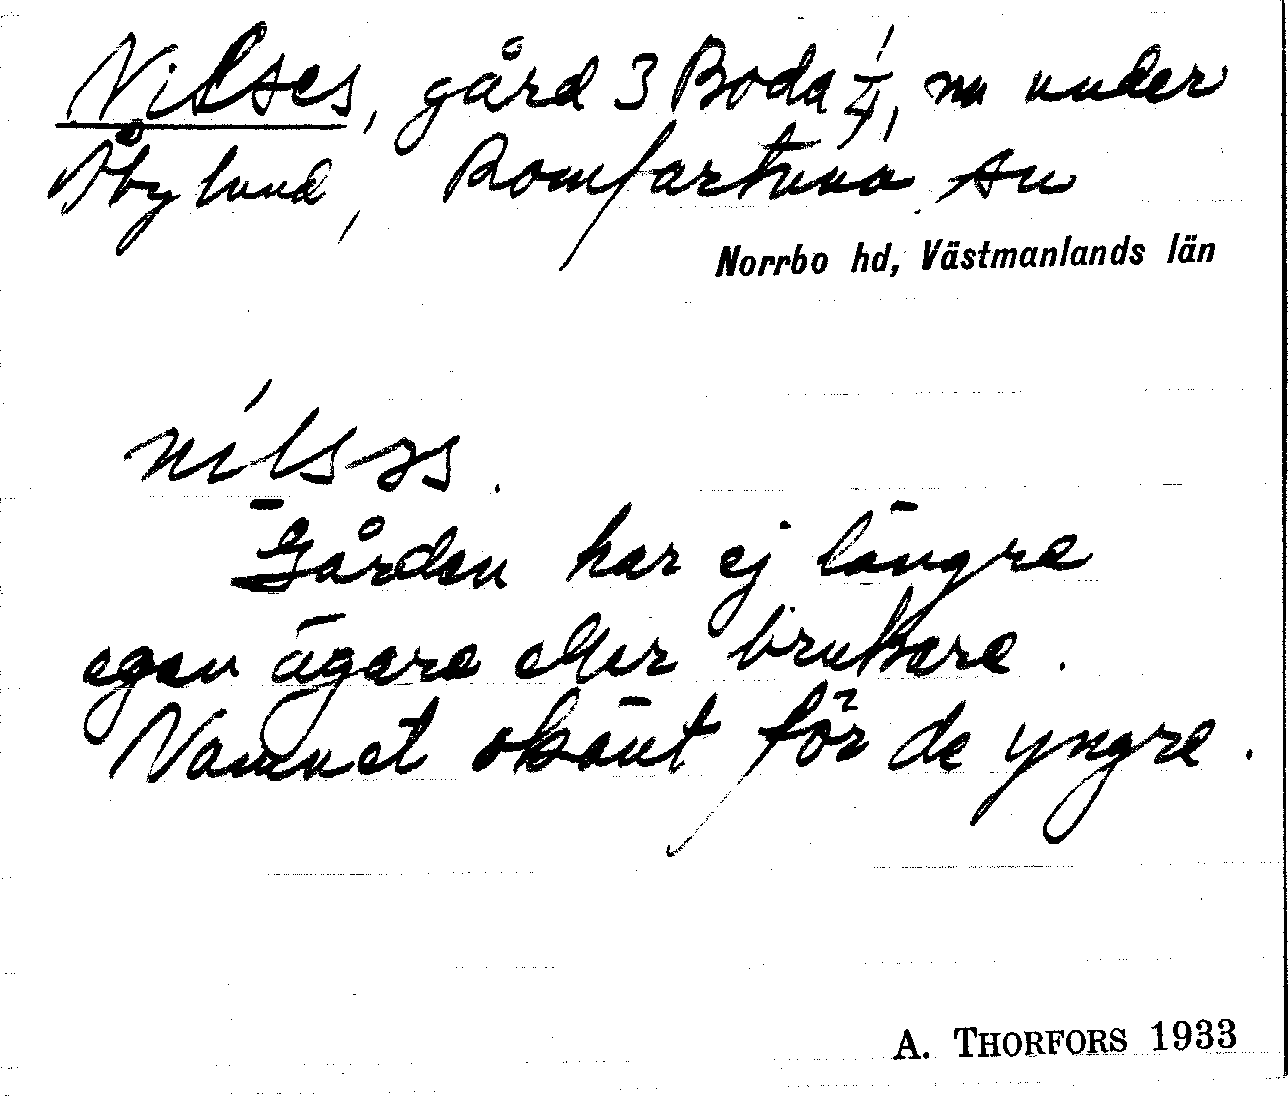 Nilses, gård 3 Boda 1/4, nu under
Åbylund, Romfartuna sn
Norrbo hd, Västmanlands län
nílsəs.
Gården har ej längre
egen ägare eller brukare.
Namnet okänt för de yngre.
A. THORFORS 1933